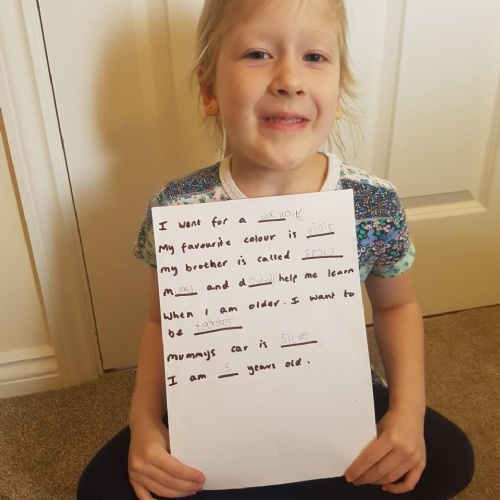 I went for a walk
My favourite colour is
My brother is called
mummy and daddy help me learn
When I am older. I want to
be teacher
Mummys car is silver
I am 5 years old.